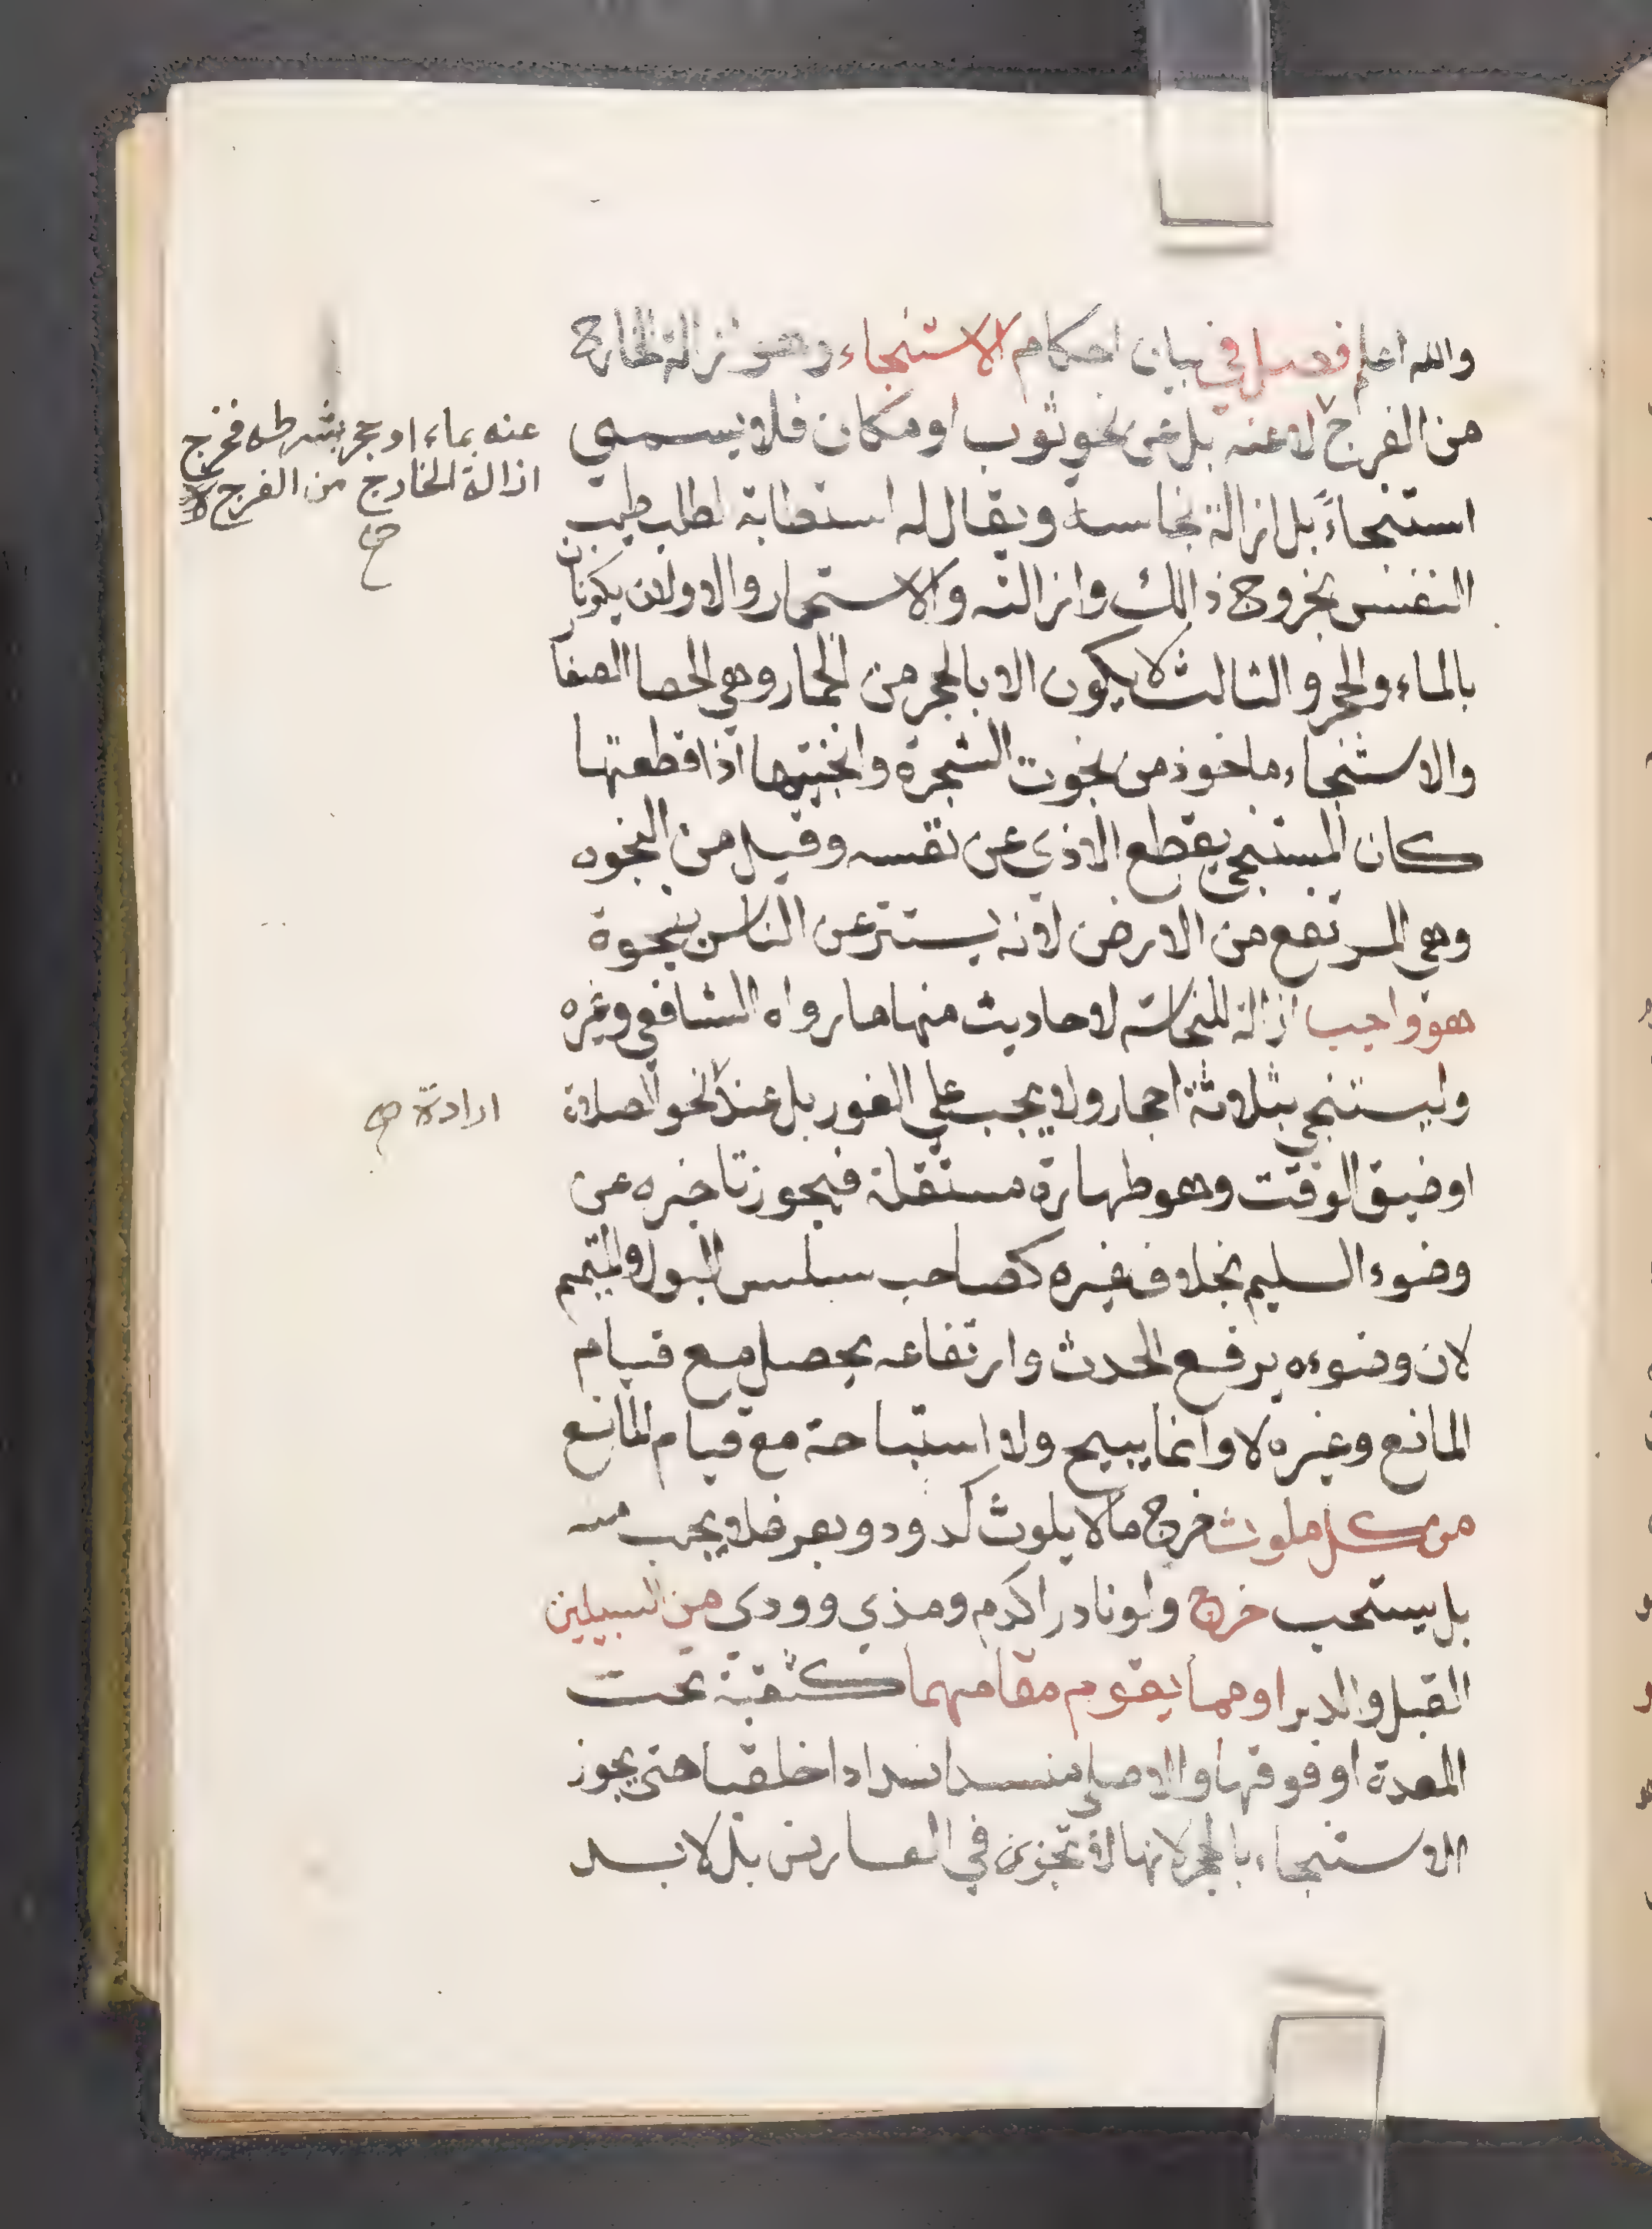 والله اعلم فصل في بيان احكام الاستنجاء وهو ازالة الخارج
من الفرج لا عنه بل عن نحو ثوب او مكان فلا يسمى
عنه بماء او حجر بشرطه فخرج
ازالة الخارج من الفرج لا
صح
استنجاءً بل ازالة نجاسة ويقال له استطابة لطلب طيب
النفس بخروج ذالك وازالته والاستجمار والاولان يكونان
بالماء والحجر والثالث لا يكون الا بالحجر من الجمار وهي الحصا الصغار
والاستنجاء ماخوذ من نجوت الشجرة وانجيتها اذا قطعتها
كان المستنجي يقطع الاذي عن نفسه وقيل من النجوه
وهي المرتفع من الارض لانه يستتر عن الناس بنجوة
هو واجب ازالة للنجاسة لاحاديث منها ما رواه الشافعي وغيره
وليستنجي بثلاثة احجار ولا يجب علي الفور بل عند نحو الصلاة
ارادة صح
او ضيق الوقت وهو طهارة مستقلة فيجوز تاخيره عن
وضوء السليم بخلاف غيره كصاحب سلس البول والمتيمم
لان وضوءه يرفع الحدث وارتفاعه يحصل مع قيام
المانع وغيره لا وانما يبيح ولا استباحة مع قيام المانع
من كل ملوث خرج ما لا يلوث كدود وبعر فلا يجب منه
بل يستحب خرج ولو نادرا كدم ومذي وودي من السبيلين
القبل والدبر او مما يقوم مقامهما كثقبة تحت
المعدة او فوقها والاصلي منسد انسدادا خلقيا حتى يجوز
الاستنجاء بالحجر لانها لا تجزي في العارض بل لا بد